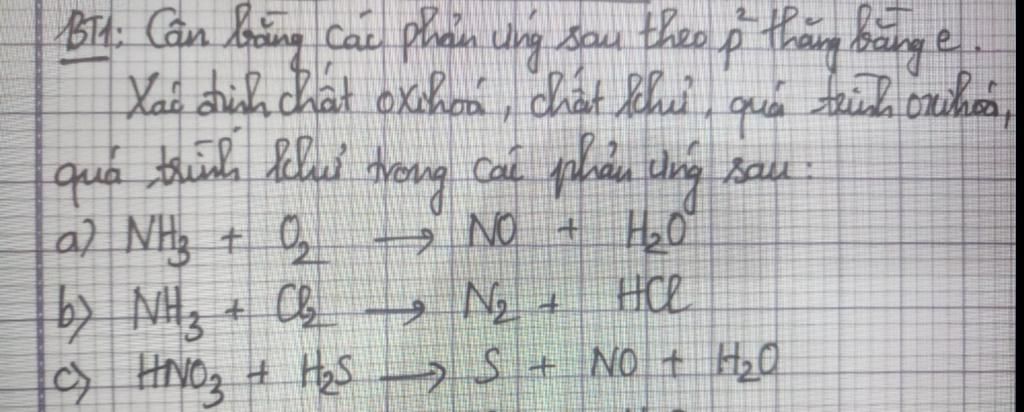 BT1: Cân bằng các phản ứng sau theo p² thăng bằng e.
Xác định chất oxihoá, chất khử, quá trình oxihoá,
quá trình khử trong các phản ứng sau:
a) NH₃ + O₂ → NO + H₂O
b) NH₃ + Cl₂ → N₂ + HCl
c) HNO₃ + H₂S → S + NO + H₂O